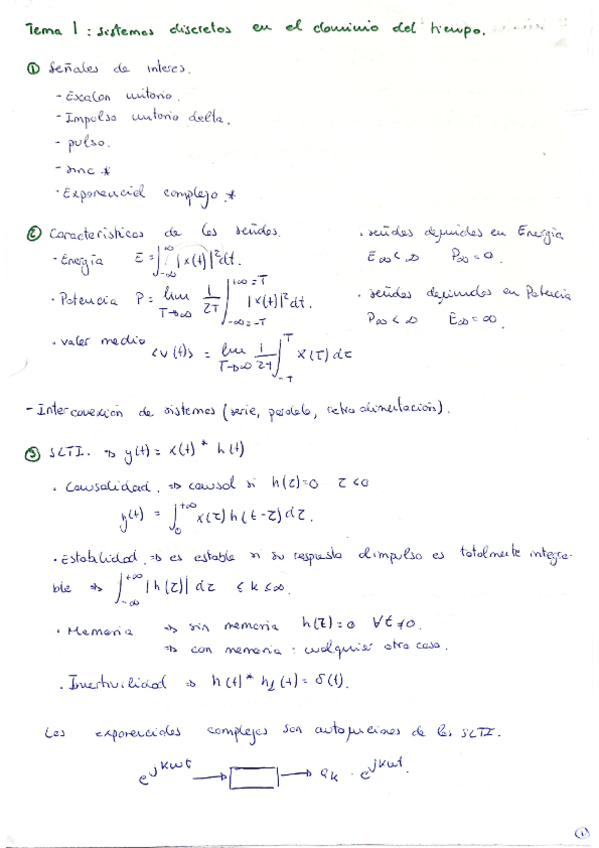 Tema 1 : sistemas discretos en el dominio del tiempo.
① Señales de interes.
- Escalon unitorio.
- Impulso unitorio delta.
- pulso.
- sinc *
- Exponencial complejo. *
② Caracteristicas de las señales.
- Energía E = ∫_{-∞}^{+∞} |x(t)|² dt.
. Potencia P = lim_{T→∞} 1/2T ∫_{-∞=-T}^{+∞=T} |x(t)|² dt.
. valor medio <v(t)> = lim_{T→∞} 1/2T ∫_{-T}^{T} x(τ) dτ
. señales definidas en Energía
E∞ < ∞ P∞ = 0.
. señales definidas en Potencia
P∞ < ∞ E∞ = ∞.
- Interconexión de sistemas (serie, paralelo, retroalimentación).
③ SLTI. ⇒ y(t) = x(t) * h(t)
. Causalidad. ⇒ causal si h(τ)=0 τ<0
y(t) = ∫_0^{+∞} x(τ) h(t-τ) dτ.
. Estabilidad. ⇒ es estable si su respuesta al impulso es totalmente integra-
ble ⇒ ∫_{-∞}^{+∞} |h(τ)| dτ ≤ k ≤ ∞.
. Memoria ⇒ sin memoria h(τ)=0 ∀t≠0.
⇒ con memoria : cualquier otro caso.
. Invertivilidad ⇒ h(t) * h₁(t) = δ(t).
Las exponenciales complejas son autofunciones de los SLTI.
e^{jkωt} → → a_k · e^{jkωt}.
①